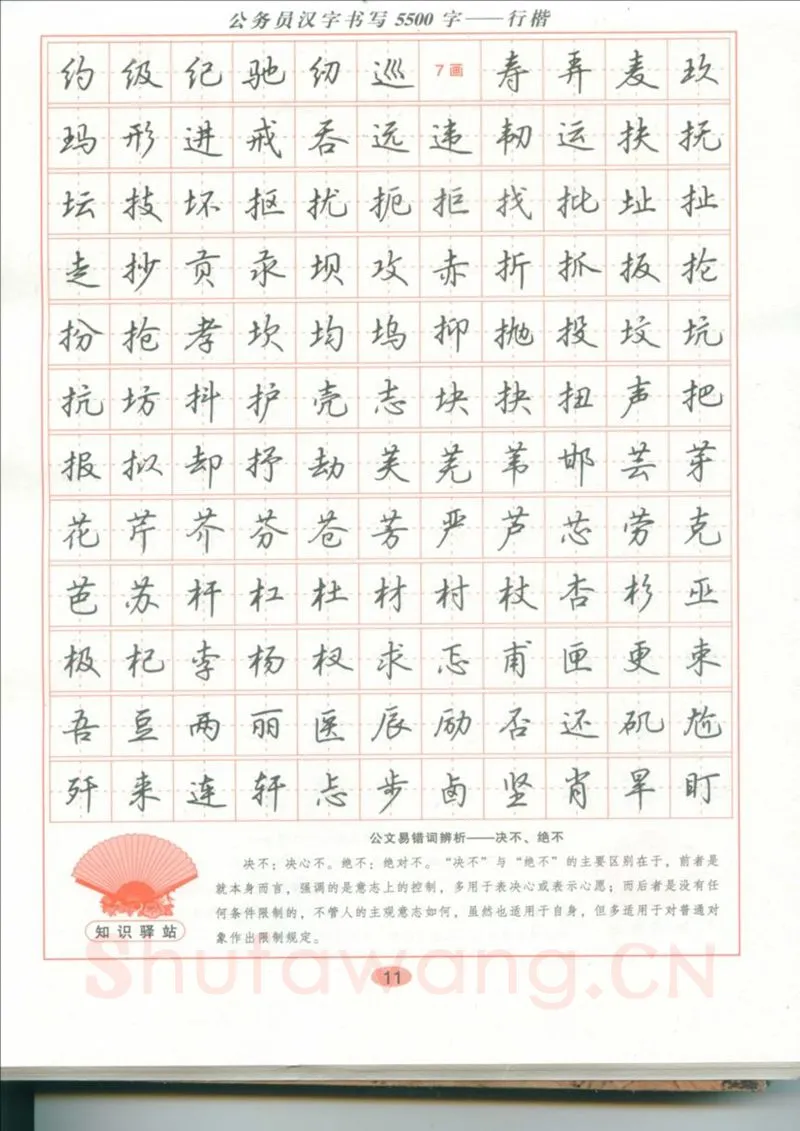 公务员汉字书写5500字——行楷
约级纪驰纫巡7画寿弄麦玖
玛形进戒吞远违韧运扶抚
坛技坏抠扰扼拒找批址扯
走抄贡汞坝攻赤折抓扳抡
扮抢孝坎均坞抑抛投坟坑
抗坊抖护壳志块抉扭声把
报拟却抒劫芙芜苇邯芸芽
花芹芥芬苍芳严芦芯劳克
芭苏杆杠杜材村杖杏杉巫
极杞李杨杈求忑甫匣更束
吾豆两丽医辰励否还矶尬
歼来连轩忐步卤坚肖旱盯
公文易错词辨析——决不、绝不
决不：决心不。绝不：绝对不。“决不”与“绝不”的主要区别在于，前者是
就本身而言，强调的是意志上的控制，多用于表决心或表示心愿；而后者是没有任
何条件限制的，不管人的主观意志如何，虽然也适用于自身，但多适用于对普通对
象作出限制规定。
知识驿站
11
Shufawang.CN